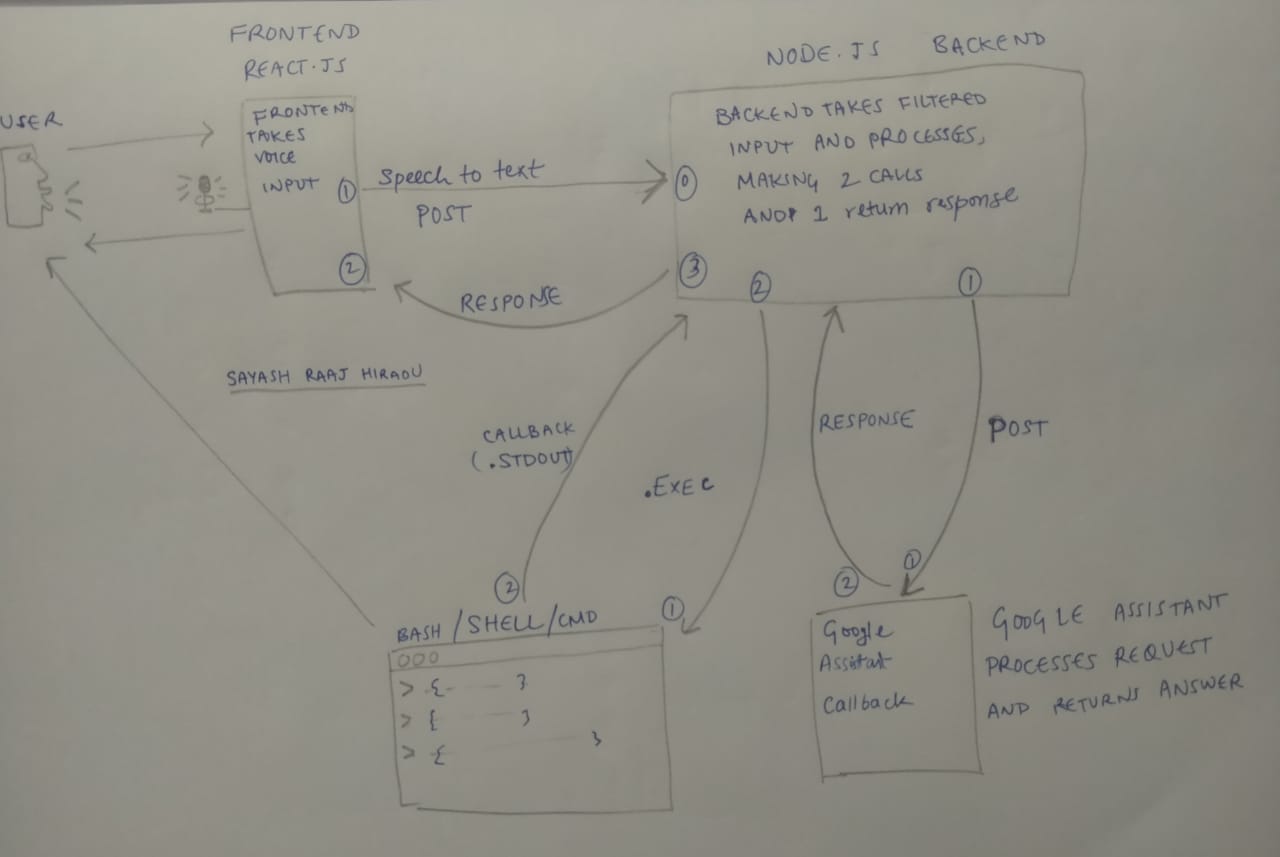 FRONTEND
REACT.JS
NODE.JS BACKEND
USER
FRONTEND
TAKES
VOICE
INPUT
1
2
Speech to text
POST
BACKEND TAKES FILTERED
INPUT AND PROCESSES,
MAKING 2 CALLS
AND 1 return response
0
3
2
1
RESPONSE
SAYASH RAAJ HIRAOU
CALLBACK
(.STDOUT)
.EXEC
RESPONSE
POST
2
1
2
1
BASH/SHELL/CMD
> { }
> { }
> { }
Google
Assistant
Callback
GOOGLE ASSISTANT
PROCESSES REQUEST
AND RETURNS ANSWER